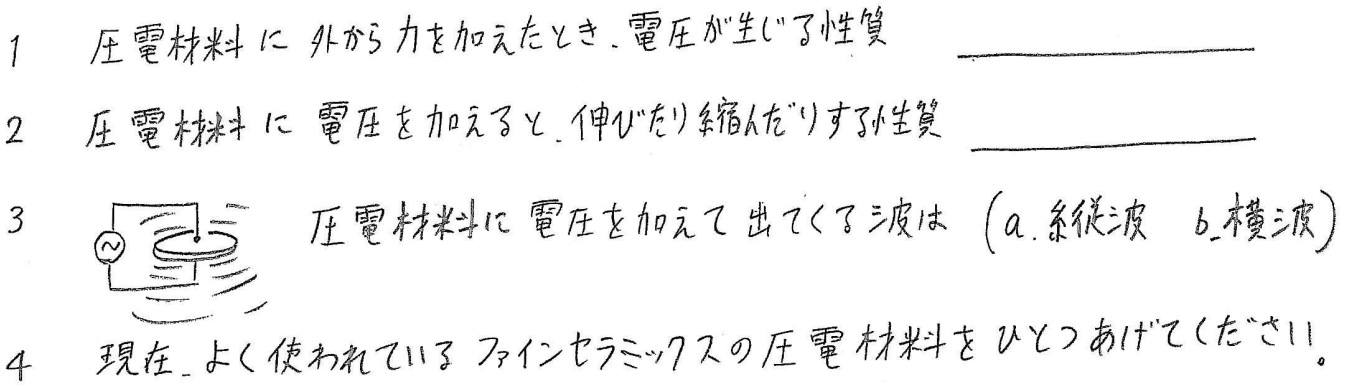 1 圧電材料に外から力を加えたとき、電圧が生じる性質
2 圧電材料に電圧を加えると、伸びたり縮んだりする性質
3 圧電材料に電圧を加えて出てくる波は (a.縦波 b.横波)
4 現在、よく使われているファインセラミックスの圧電材料をひとつあげてください。